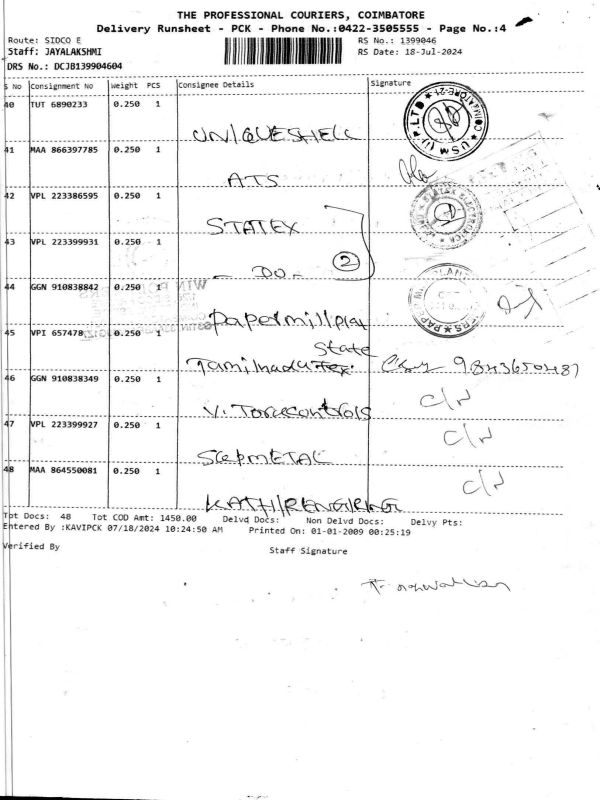 THE PROFESSIONAL COURIERS, COIMBATORE
Delivery Runsheet - PCK - Phone No.:0422-3505555 - Page No.:4
Route: SIDCO E RS No.: 1399046
Staff: JAYALAKSHMI RS Date: 18-Jul-2024
DRS No.: DCJB139904604
S No Consignment No Weight PCS Consignee Details Signature
40 TUT 6890233 0.250 1
UNIQUESHELL
41 MAA 866397785 0.250 1
ATS
42 VPL 223386595 0.250 1
STATEX
43 VPL 223399931 0.250 1
- DO - 2
44 GGN 910838842 0.250 1
Papermill plat
45 VPI 657478 0.250 1
State
Tamilnadu Tex 9843650487
46 GGN 910838349 0.250 1
V. Torucontrols C/N
47 VPL 223399927 0.250 1
METAL C/N
48 MAA 864550081 0.250 1
C/N
Tot Docs: 48 Tot COD Amt: 1450.00 Delvd Docs: Non Delvd Docs: Delvy Pts:
Entered By :KAVIPCK 07/18/2024 10:24:50 AM Printed On: 01-01-2009 00:25:19
Verified By Staff Signature